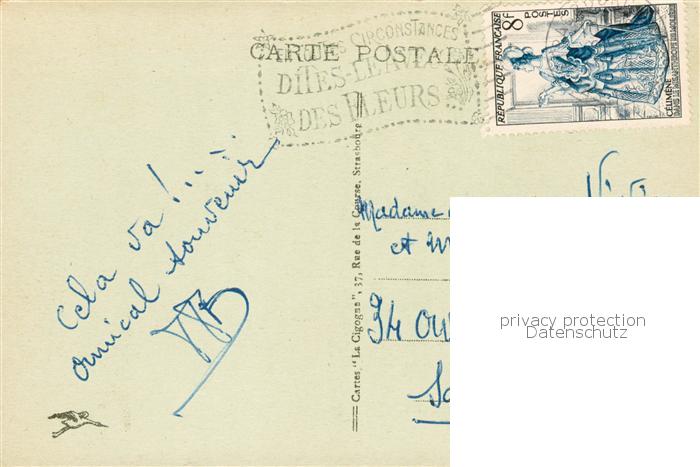 CARTE POSTALE
CIRCONSTANCES
DITES-LE AVEC
DES FLEURS
RÉPUBLIQUE FRANÇAISE
8F
POSTES
CÉLIMÈNE
Cela va !...
amical souvenir
Cartes "La Cigogne", 37, Rue de la Course, Strasbourg
Madame
et
94
privacy protection
Datenschutz